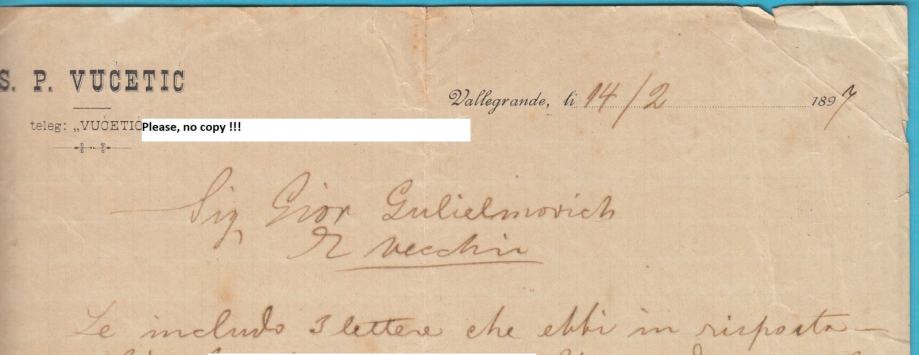 S. P. VUCETIC
Vallegrande, li 14/2 1897
teleg: „VUCETIC
Please, no copy !!!
Sig Gior Gulielmovich
Vecchia
Le includo 3 lettere che ebbi in risposta —